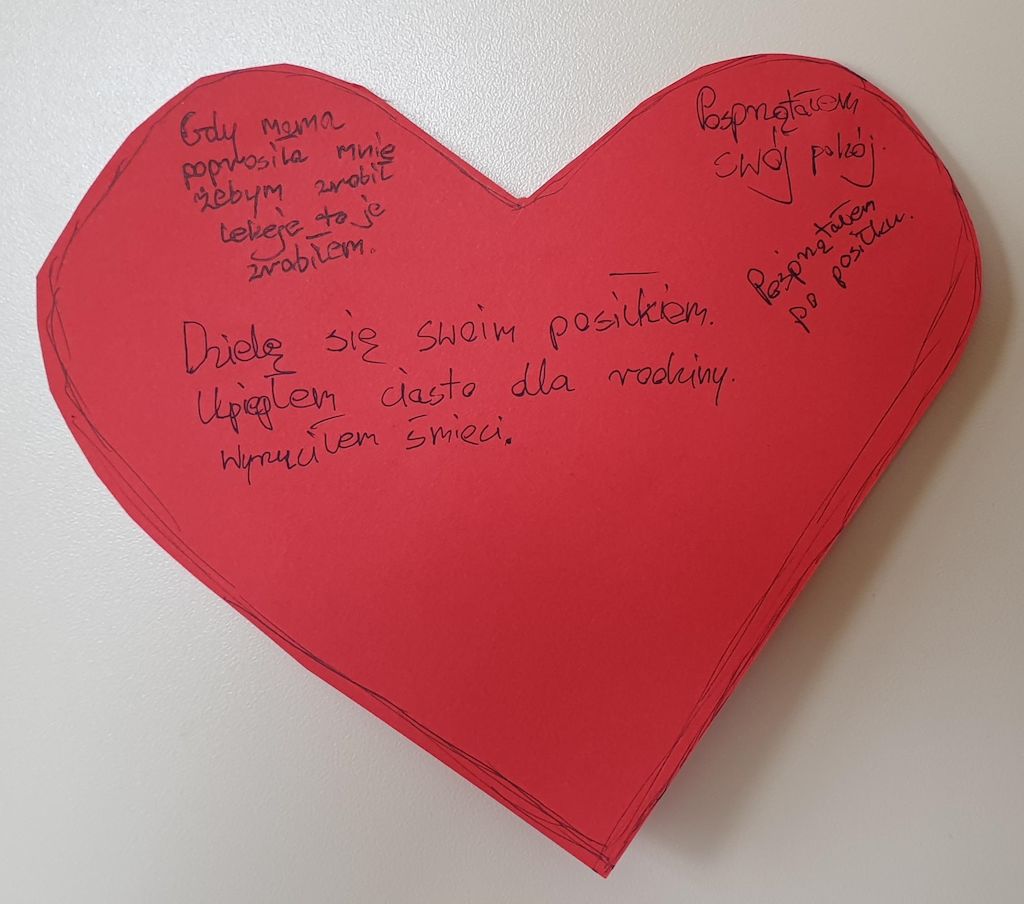 Gdy mama
poprosiła mnie
żebym zrobił
lekcje to je
zrobiłem.
Posprzątałem
swój pokój.
Posprzątałem
po posiłku.
Dzielę się swoim posiłkiem.
Upiekłem ciasto dla rodziny.
Wyrzuciłem śmieci.